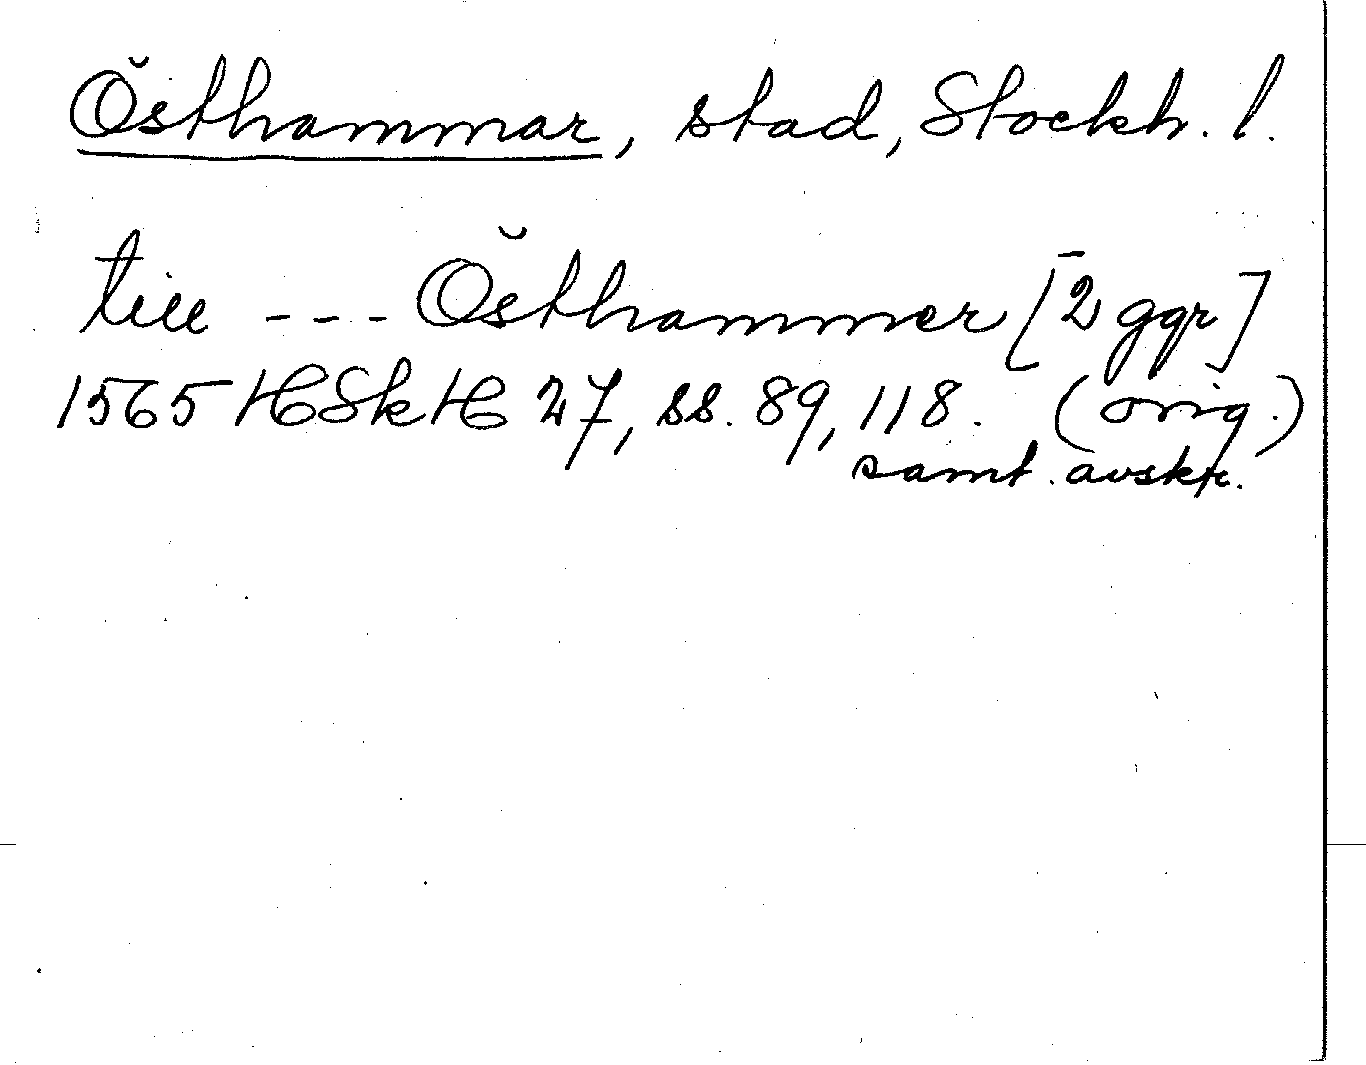 Östhammar, stad, Stockh. l.
till --- Östhammer [2 ggr]
1565 HSkH 27, ss. 89, 118. (orig.)
samt. avskr.